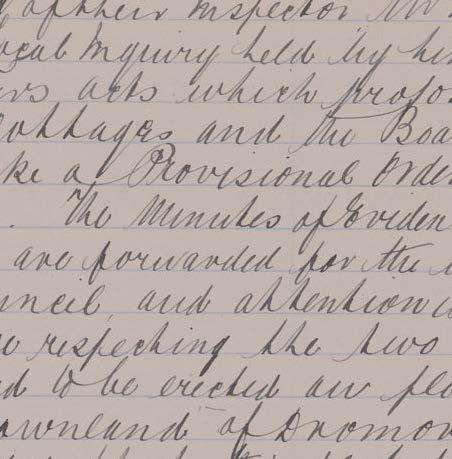 of their Inspector Mr
ocal Inquiry held by hi
rs acts which propo
Cottages and the Boa
ke a Provisional Orde
. The Minutes of Eviden
are forwarded for the
uncil and attention
respecting the two
d to be erected on
ownland of Dromor